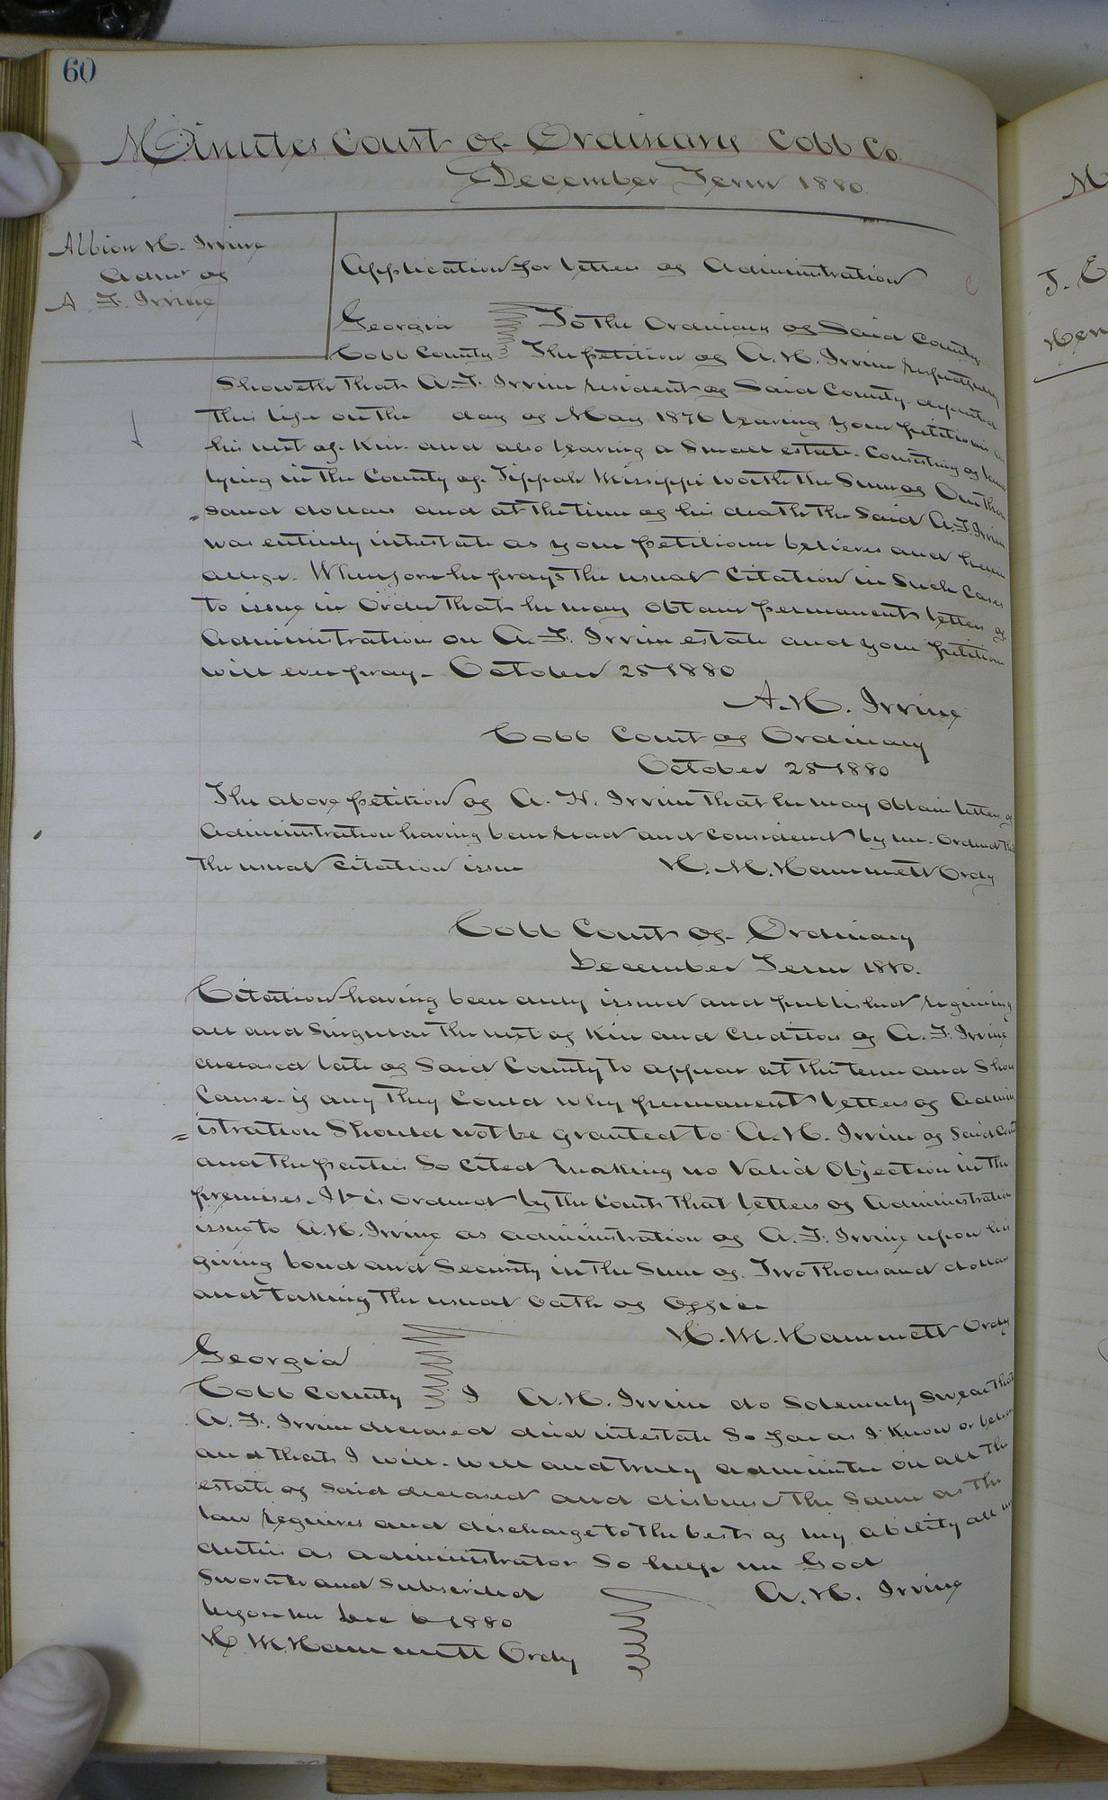 60
Minutes Court of Ordinary Cobb Co.
December Term 1880.
Albion H. Irvine
Admr of
A. F. Irvine
Application for letters of Administration
Georgia To the Ordinary of Said County
Cobb County The petition of A. H. Irvine respectfully
Showeth that A. F. Irvine resident of Said County departed
this life on the day of May 1876 leaving your petitioner
his next of Kin and also leaving a Small estate Consisting of land
lying in the County of Tippah Missippi worth the Sum of One thou
sand dollars and at the time of his death the Said A. F. Irvine
was entirely intestate as your petitioner believes and here
alleges. Wherefore he prays the usual Citation in Such Cases
to issue in Order that he may obtain permanent letters of
Administration on A. F. Irvine estate and your petitioner
will ever pray. October 25 1880
A. H. Irvine
Cobb Court of Ordinary
October 25 1880
The above petition of A. H. Irvine that he may obtain letters of
Administration having been read and considered by me. Ordered that
the usual Citation issue H. M. Hammett Ordy
Cobb Court of Ordinary
December Term 1880.
Citation having been duly issued and published requiring
all and Singular the next of Kin and Creditors of A. F. Irvine
deceased late of Said County to appear at this term and Show
Cause if any they Could why permanent letters of Admin
istration Should not be granted to A. H. Irvine of Said County
and the parties So Cited making no Valid Objection in the
premises. It is ordered by the Court that letters of Administration
issue to A. H. Irvine as administration of A. F. Irvine upon his
giving bond and Security in the Sum of Two Thousand dollars
and taking the usual oath of Office
H. M. Hammett Ordy
Georgia
Cobb County I A. H. Irvine do Solemnly Swear that
A. F. Irvine deceased died intestate So far as I Know or believe
and that I will well and truly administer on all the
estate of Said deceased and disburse the Same as the
law requires and discharge to the best of my ability all my
duties as administrator So help me God
Sworn to and Subscribed A. H. Irvine
before me Dec 6 1880
H. M. Hammett Ordy